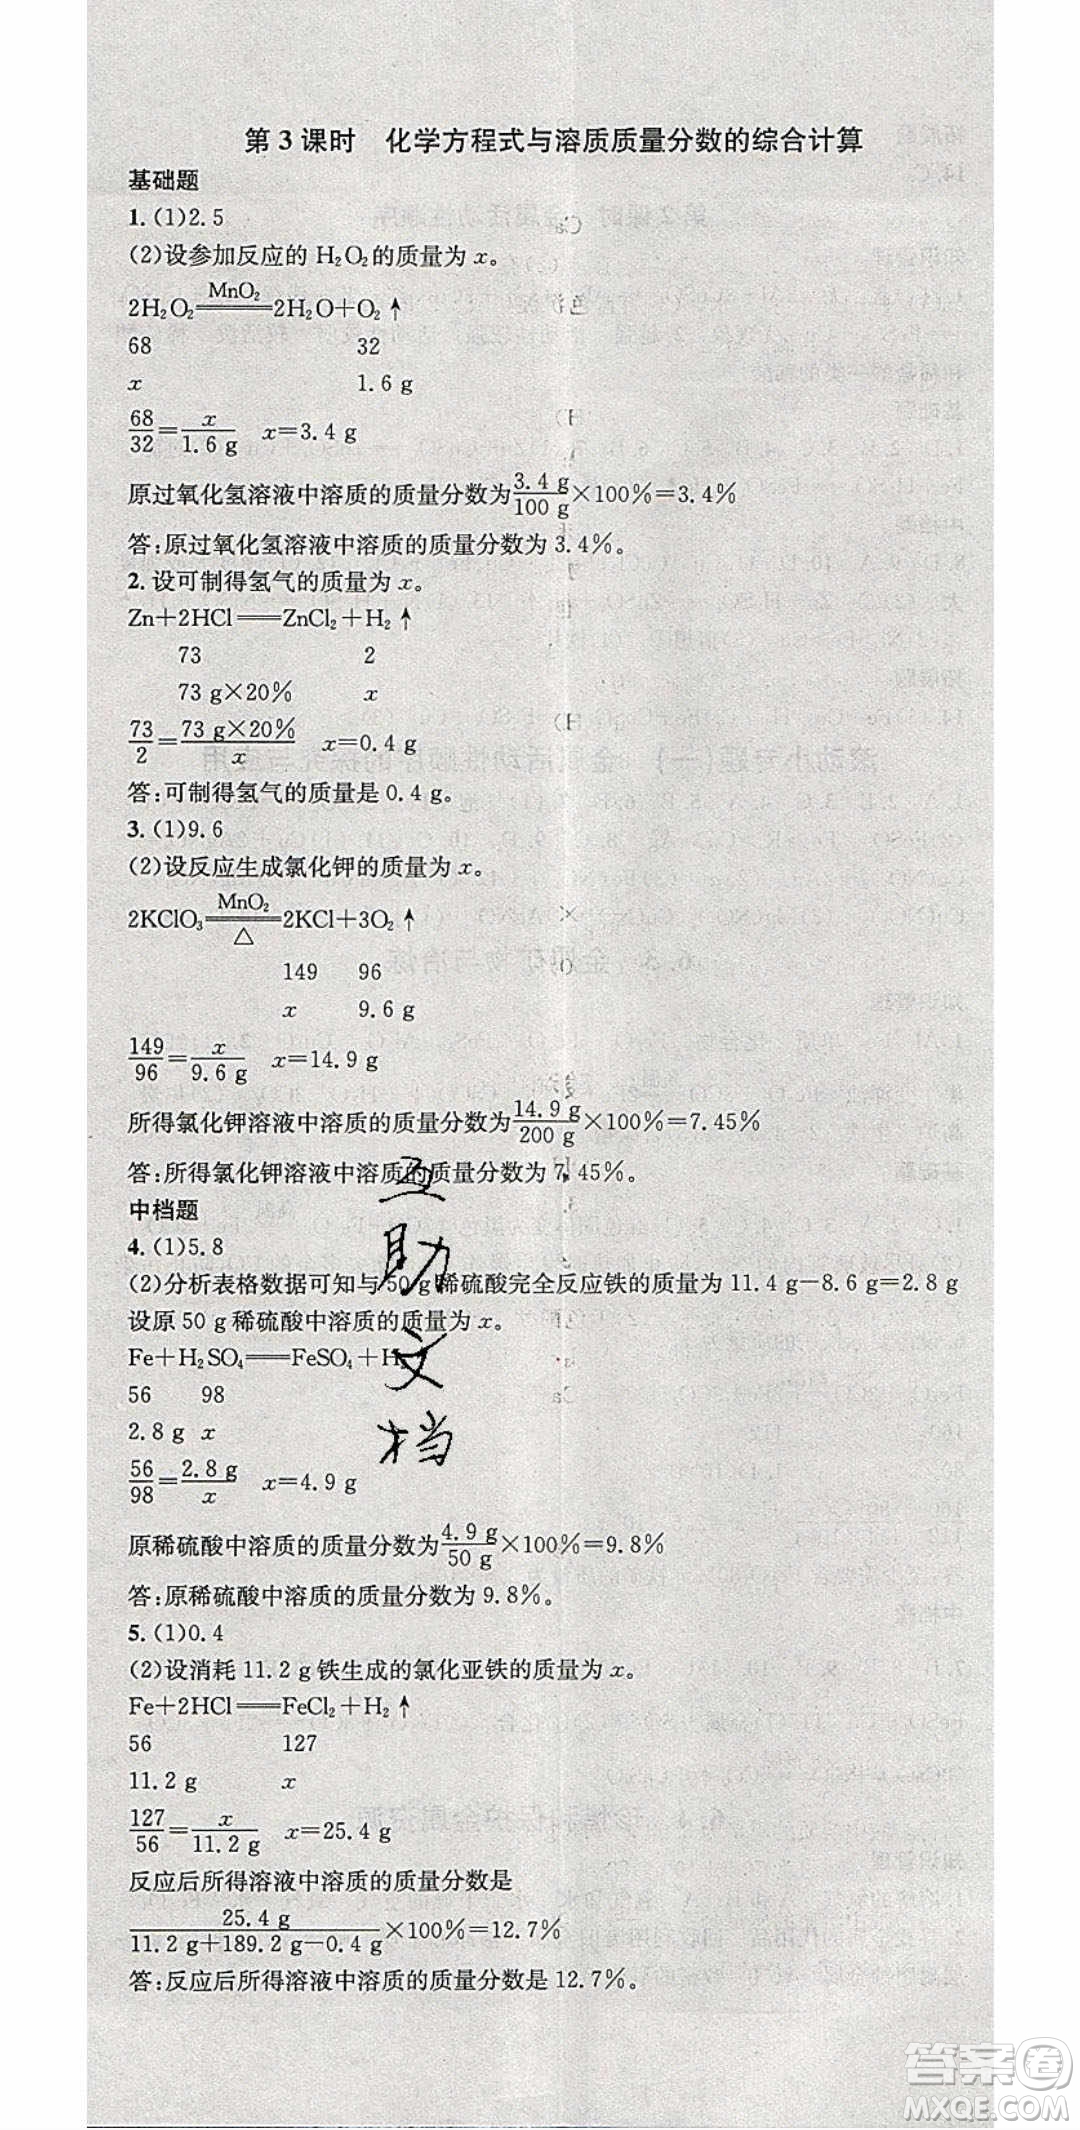 第3课时 化学方程式与溶质质量分数的综合计算
基础题
1.(1)2.5
(2)设参加反应的 H₂O₂的质量为 x。
2H₂O₂ =MnO₂= 2H₂O+O₂↑
68 32
x 1.6 g
68/32=x/1.6 g x=3.4 g
原过氧化氢溶液中溶质的质量分数为3.4 g/100 g×100%=3.4%
答:原过氧化氢溶液中溶质的质量分数为 3.4%。
2.设可制得氢气的质量为 x。
Zn+2HCl══ZnCl₂+H₂↑
73 2
73 g×20% x
73/2=73 g×20%/x x=0.4 g
答:可制得氢气的质量是 0.4 g。
3.(1)9.6
(2)设反应生成氯化钾的质量为 x。
2KClO₃ =MnO₂/△= 2KCl+3O₂↑
149 96
x 9.6 g
149/96=x/9.6 g x=14.9 g
所得氯化钾溶液中溶质的质量分数为14.9 g/200 g×100%=7.45%
答:所得氯化钾溶液中溶质的质量分数为 7.45%。
中档题
4.(1)5.8
(2)分析表格数据可知与 50 g 稀硫酸完全反应铁的质量为 11.4 g−8.6 g=2.8 g
设原 50 g 稀硫酸中溶质的质量为 x。
Fe+H₂SO₄══FeSO₄+H₂↑
56 98
2.8 g x
56/98=2.8 g/x x=4.9 g
原稀硫酸中溶质的质量分数为4.9 g/50 g×100%=9.8%
答:原稀硫酸中溶质的质量分数为 9.8%。
5.(1)0.4
(2)设消耗 11.2 g 铁生成的氯化亚铁的质量为 x。
Fe+2HCl══FeCl₂+H₂↑
56 127
11.2 g x
127/56=x/11.2 g x=25.4 g
反应后所得溶液中溶质的质量分数是
25.4 g/11.2 g+189.2 g−0.4 g×100%=12.7%
答:反应后所得溶液中溶质的质量分数是 12.7%。
互助文档
答案圈
MXQE.COM